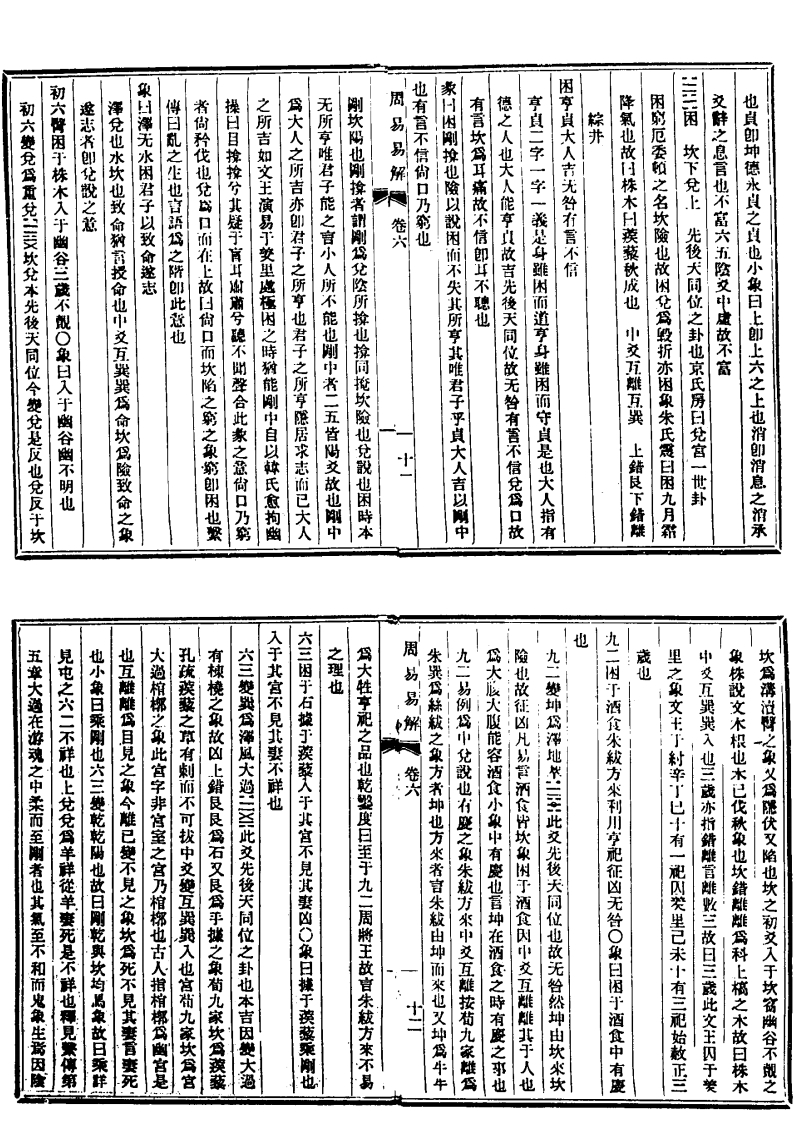 也貞卽坤德永貞之貞也小象曰上卽上六之上也消卽消息之消承
爻辭之息言也不富六五陰爻中虛故不富
困　坎下兌上　先後天同位之卦也京氏房曰兌宮一世卦
困窮厄委頓之名坎險也故困兌爲毀折亦困象朱氏震曰困九月霜
降氣也故曰株木曰蒺藜秋成也　中爻互離互巽　上錯艮下錯離
綜井
困亨貞大人吉无咎有言不信
亨貞二字一字一義是身雖困而道亨身雖困而守貞是也大人指有
德之人也大人能亨貞故吉先後天同位故无咎有言不信兌爲口故
有言坎爲耳痛故不信卽耳不聽也
彖曰困剛揜也險以說困而不失其所亨其唯君子乎貞大人吉以剛中
也有言不信尙口乃窮也
周易易解
卷六
十一
剛坎陽也剛揜者謂剛爲兌陰所揜也揜同掩坎險也兌說也困時本
无所亨唯君子能之言小人所不能也剛中者二五皆陽爻故也剛中
爲大人之所吉亦卽君子之所亨也君子之所亨隱居求志而已大人
之所吉如文王演易于羑里處極困之時猶能剛中自以韓氏愈拘幽
操曰目揜揜兮其疑于盲耳肅肅兮聽不聞聲合此彖之意尙口乃窮
者尙矜伐也兌爲口而在上故曰尙口而坎陷之窮之象窮卽困也繫
傳曰亂之生也言語爲之階卽此意也
象曰澤无水困君子以致命遂志
澤兌也水坎也致命猶言授命也中爻互巽巽爲命坎爲險致命之象
遂志者卽兌說之意
初六臀困于株木入于幽谷三歲不覿〇象曰入于幽谷幽不明也
初六變兌爲重兌坎兌本先後天同位今變兌是反也兌反于坎
坎爲溝瀆臀之象又爲隱伏又陷也坎之初爻入于坎窞幽谷不覿之
象株說文木根也木已伐秋象也坎錯離離爲科上槁之木故曰株木
中爻互巽巽入也三歲亦指錯離言離數三故曰三歲此文王囚于羑
里之象文王于紂辛丁巳十有一祀囚羑里己未十有三祀始赦正三
歲也
九二困于酒食朱紱方來利用亨祀征凶无咎〇象曰困于酒食中有慶
也
九二變坤爲澤地萃此爻先後天同位也故无咎然坤由坎來坎
險也故征凶凡易言酒食皆坎象困于酒食因中爻互離離其于人也
爲大腹大腹能容酒食小象中有慶也言坤在酒食之時有慶之事也
九二易例爲中兌說也有慶之象朱紱方來中爻互離按荀九家離爲
朱巽爲絲紱之象方者坤也方來者言朱紱由坤而來也又坤爲牛牛
周易易解
卷六
十二
爲大牲亨祀之品也乾鑿度曰至于九二周將王故言朱紱方來不易
之理也
六三困于石據于蒺藜入于其宮不見其妻凶〇象曰據于蒺藜乘剛也
入于其宮不見其妻不祥也
六三變巽爲澤風大過此爻先後天同位之卦也本吉因變大過
有棟橈之象故凶上錯艮艮爲石又艮爲手據之象荀九家坎爲蒺藜
孔疏蒺藜之草有刺而不可拔中爻變互巽巽入也宮荀九家坎爲宮
大過棺槨之象此宮字非宮室之宮乃棺槨也古人指棺槨爲幽宮是
也互離離爲目見之象今離已變不見之象坎爲死不見其妻言妻死
也小象曰乘剛也六三變乾乾陽也故曰剛乾與坎均馬象故曰乘詳
見屯之六二不祥也上兌兌爲羊祥從羊妻死是不祥也釋見繫傳第
五章大過在游魂之中柔而至剛者也其氣至不和而鬼象生焉因陰